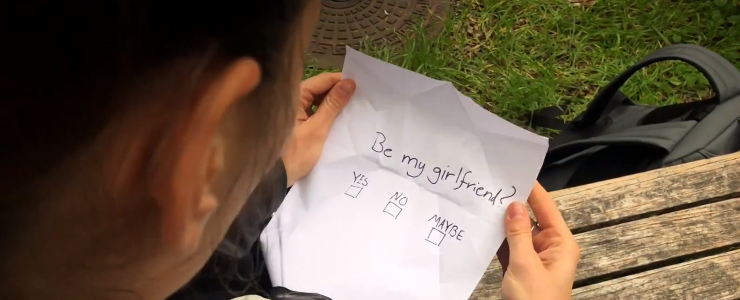 Be my girlfriend?
YES NO MAYBE